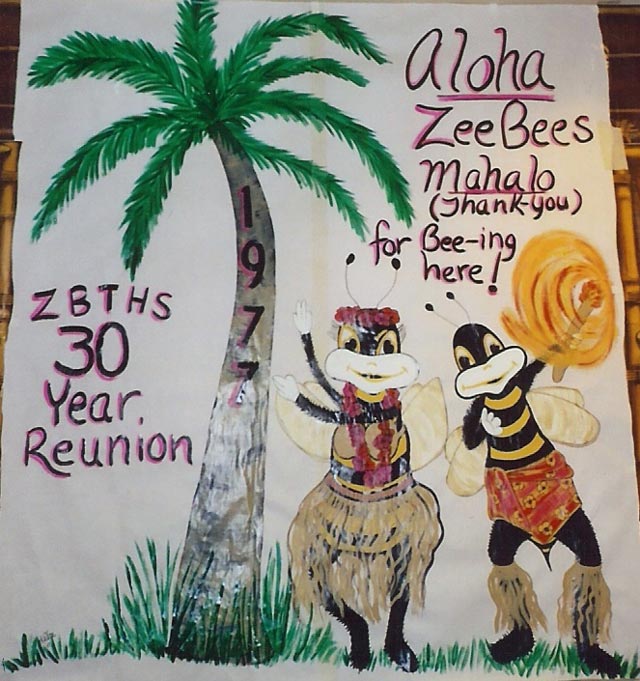 Aloha
ZeeBees
Mahalo
(Thank-you)
for Bee-ing
here!
1977
ZBTHS
30
Year
Reunion